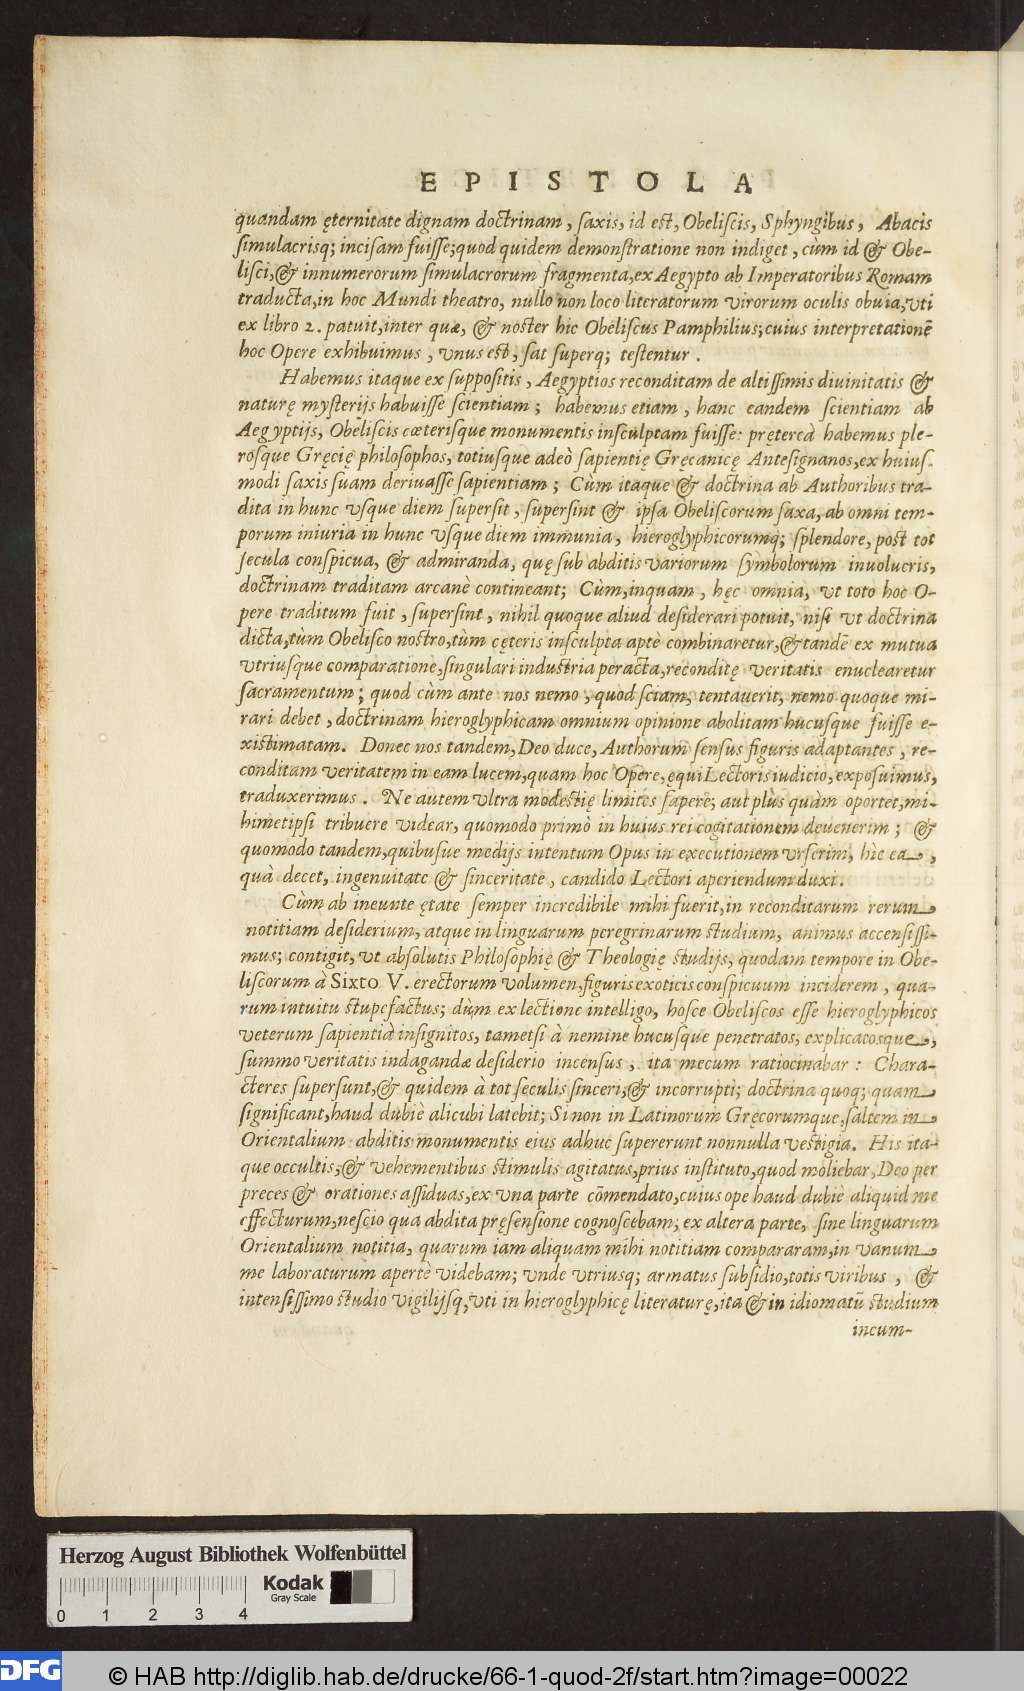 EPISTOLA
quandam ęternitate dignam doctrinam, ſaxis, id eſt, Obeliſcis, Sphyngibus, Abacis
ſimulacrisq; inciſam fuiſſe; quod quidem demonſtratione non indiget, cùm id & Obe-
liſci, & innumerorum ſimulacrorum fragmenta, ex Aegypto ab Imperatoribus Romam
traducta, in hoc Mundi theatro, nullo non loco literatorum virorum oculis obuia, vti
ex libro 2. patuit, inter quæ, & noster hic Obeliſcus Pamphilius; cuius interpretationē
hoc Opere exhibuimus, vnus est, ſat ſuperq; testentur.
Habemus itaque ex ſuppoſitis, Aegyptios reconditam de altiſſimis diuinitatis &
naturę mysterijs habuiſſe ſcientiam; habemus etiam, hanc eandem ſcientiam ab
Aegyptijs, Obeliſcis cœteriſque monumentis inſculptam fuiſſe: pręterea̓ habemus ple-
roſque Gręcię philoſophos, totiuſque adeò ſapientię Gręcanicę Anteſignanos, ex huiuſ-
modi ſaxis ſuam deriuaſſe ſapientiam; Cùm itaque & doctrina ab Authoribus tra-
dita in hunc vſque diem ſuperſit, ſuperſint & ipſa Obeliſcorum ſaxa, ab omni tem-
porum iniuria in hunc vſque diem immunia, hieroglyphicorumq; ſplendore, post tot
ſecula conſpicua, & admiranda, quę ſub abditis variorum ſymbolorum inuolucris,
doctrinam traditam arcanè contineant; Cùm, inquam, hęc omnia, vt toto hoc O-
pere traditum fuit, ſuperſint, nihil quoque aliud deſiderari potuit, niſi vt doctrina
dicta, tùm Obeliſco nostro, tùm cęteris inſculpta aptè combinaretur, & tandē ex mutua
vtriuſque comparatione, ſingulari industria peracta, reconditę veritatis enuclearetur
ſacramentum; quod cùm ante nos nemo, quod ſciam, tentauerit, nemo quoque mi-
rari debet, doctrinam hieroglyphicam omnium opinione abolitam hucuſque fuiſſe e-
xistimatam. Donec nos tandem, Deo duce, Authorum ſenſus figuris adaptantes, re-
conditam veritatem in eam lucem, quam hoc Opere, ęqui Lectoris iudicio, expoſuimus,
traduxerimus. Ne autem vltra modestię limites ſapere, aut plùs quàm oportet, mi-
himetipſi tribuere videar, quomodo primò in huius rei cogitationem deuenerim; &
quomodo tandem, quibuſue medijs intentum Opus in executionem vrſerim, hìc ea,
quà decet, ingenuitate & ſinceritate, candido Lectori aperiendum duxi.
Cùm ab ineunte ętate ſemper incredibile mihi fuerit, in reconditarum rerum
notitiam deſiderium, atque in linguarum peregrinarum studium, animus accenſiſſi-
mus; contigit, vt abſolutis Philoſophię & Theologię studijs, quodam tempore in Obe-
liſcorum à Sixto V. erectorum volumen, figuris exoticis conſpicuum inciderem, qua-
rum intuitu stupefactus; dùm ex lectione intelligo, hoſce Obeliſcos eſſe hieroglyphicos
veterum ſapientiâ inſignitos, tametſi à nemine hucuſque penetratos, explicatosque,
ſummo veritatis indagandæ deſiderio incenſus, ita mecum ratiocinabar: Chara-
cteres ſuperſunt, & quidem à tot ſeculis ſinceri, & incorrupti; doctrina quoq; quam
ſignificant, haud dubiè alicubi latebit; Si non in Latinorum Gręcorumque, ſaltem in
Orientalium abditis monumentis eius adhuc ſupererunt nonnulla vestigia. His ita-
que occultis, & vehementibus stimulis agitatus, prius instituto, quod moliebar, Deo per
preces & orationes aſſiduas, ex vna parte cōmendato, cuius ope haud dubiè aliquid me
effecturum, neſcio qua abdita pręſenſione cognoſcebam; ex altera parte, ſine linguarum
Orientalium notitia, quarum iam aliquam mihi notitiam compararam, in vanum
me laboraturum apertè videbam; vnde vtriuſq; armatus ſubſidio, totis viribus, &
intenſiſſimo studio vigilijſq, vti in hieroglyphicę literaturę, ita & in idiomatū studium
incum-
Herzog August Bibliothek Wolfenbüttel
Kodak
Gray Scale
0 1 2 3 4
DFG © HAB http://diglib.hab.de/drucke/66-1-quod-2f/start.htm?image=00022